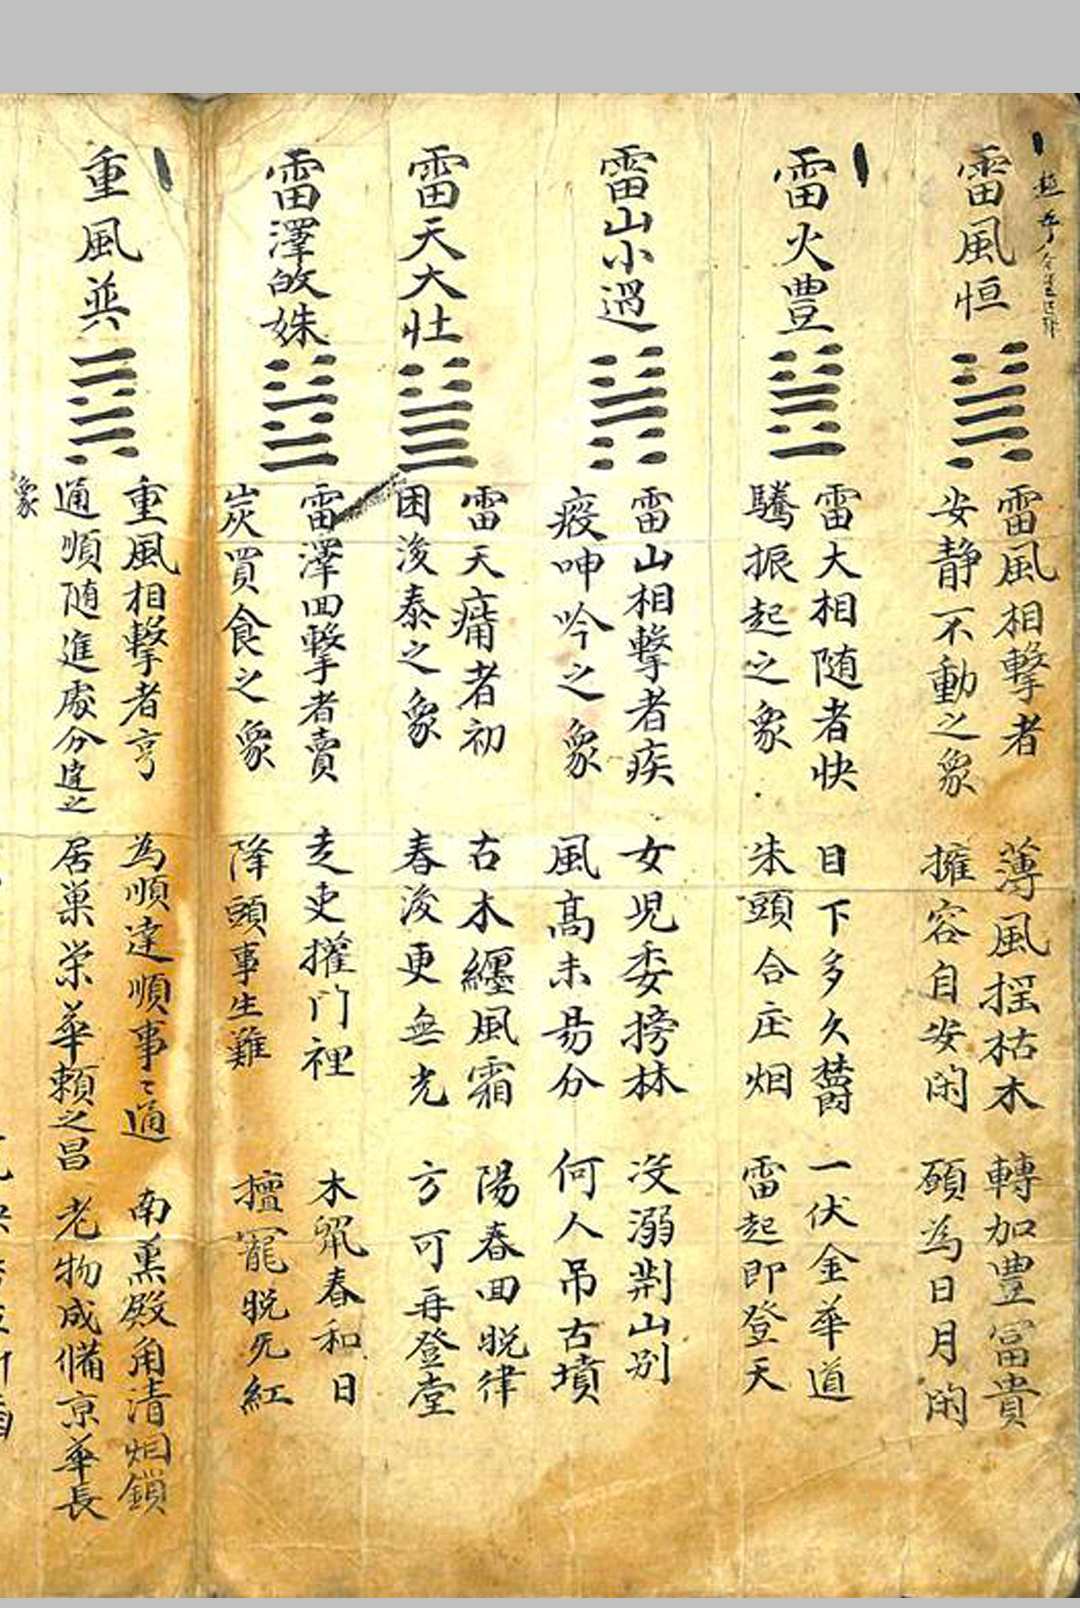 雷風恒
雷風相擊者
安静不動之象
薄風摇枯木
擁容自安闲
轉加豊冨貴
願為日月闲
雷火豊
雷大相随者快
騰振起之象
目下多久欝
朱頭合庄烟
一伏金華道
雷起即登天
雷山小過
雷山相擊者疾
疫呻吟之象
女児委搒林
風髙未易分
没溺荆山别
何人吊古墳
雷天大壮
雷天痛者初
困浚泰之象
古木纒風霜
春浚更無光
陽春回脱律
方可再登堂
雷澤㱕妹
雷澤回擊者賣
炭買食之象
走吏擢门裡
降頭事生難
木 春和日
擅寵脱死紅
重風巽
重風相擊者亨
通順随進處分達之
象
為順達順事〻通
居巢荣華頼之昌
南薫殿角清烟鎖
老物成備京華長